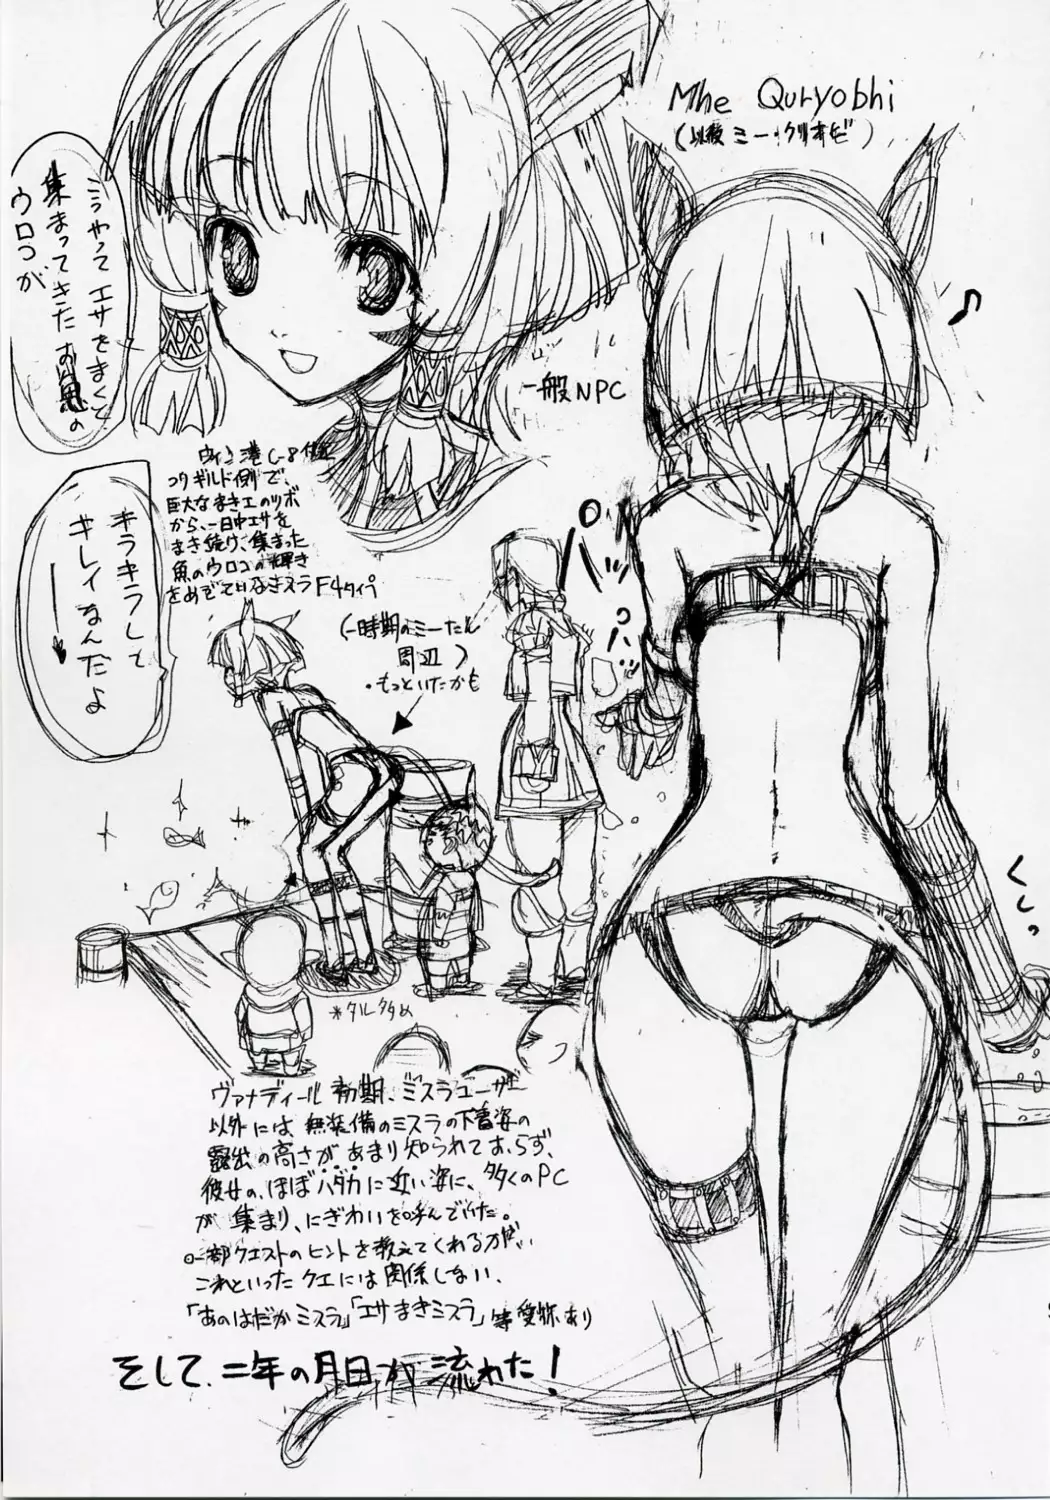 Mhe Quryobhi
(以後ミー・クリオビ)
こうやってエサをまくて
集まってきたお魚の
ウロコが
一般NPC
ウィン港C-8付近
コウギルド側で、
巨大なまきエのツボ
から、一日中エサを
まき続け、集まった
魚のウロコの輝き
をめでているミスラF4タイプ
キラキラして
キレイなんだよ
(一時期のミーたん
周辺)
・もっといたかも
ハァハァ
くしっ
*タル多め
ヴァナディール初期、ミスラユーザー
以外には無装備のミスラの下着姿の
露出の高さがあまり知られておらず、
彼女の、ほぼハダカに近い姿に、多くのPC
が集まり、にぎわいを呼んでいた。
一部クエストのヒントを教えてくれる方だが、
これといったクエには関係しない、
「あのはだかミスラ」「エサまきミスラ」等愛称あり
そして、二年の月日が流れた!